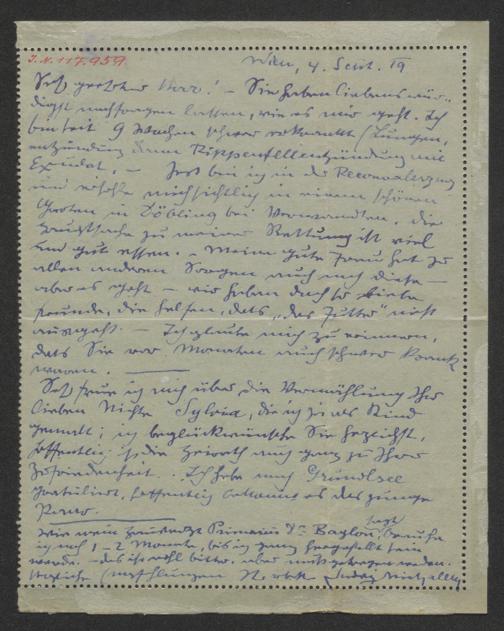 J.N. 117.959
Wien, 4. Sept. 19
Sehr geehrter Herr! – Sie haben liebenswür-
digst nachfragen lassen, wie es mir geht. Ich
bin seit 9 Wochen schwer erkrankt (Lungen-
entzündung dann Rippenfellentzündung mit
Exsudat. – Jetzt bin ich in der Reconvaleszenz
und erhole mich sichtlich in einem schönen
Garten in Döbling bei Verwandten, die
Hauptsache zu meiner Rettung ist viel
und gut essen. – Meine gute Frau hat zu
allen anderen Sorgen auch noch diese –
aber es geht – wir haben doch so liebe
Freunde, die helfen, dass "das Futter" nicht
ausgeht. – Ich glaube mich zu erinnern,
dass Sie vor Monaten auch schwer krank
waren. –
Sehr freue ich mich über die Vermählung Ihrer
lieben Nichte Sylvia, die ich ja als Kind
gemalt; ich beglückwünsche Sie herzlichst,
hoffentlich ist die Heirath auch ganz zu Ihrer
Zufriedenheit. Ich habe nach Grundlsee
gratuliert, hoffentlich bekommt es das junge
Paar.
Wie mein Primarius Dr. Baylon sagt, brauche
ich noch 1–2 Monate, bis ich ganz hergestellt sein
werde. – das ist wohl bitter, aber muss getragen werden.
Herzliche Empfehlungen Ihr